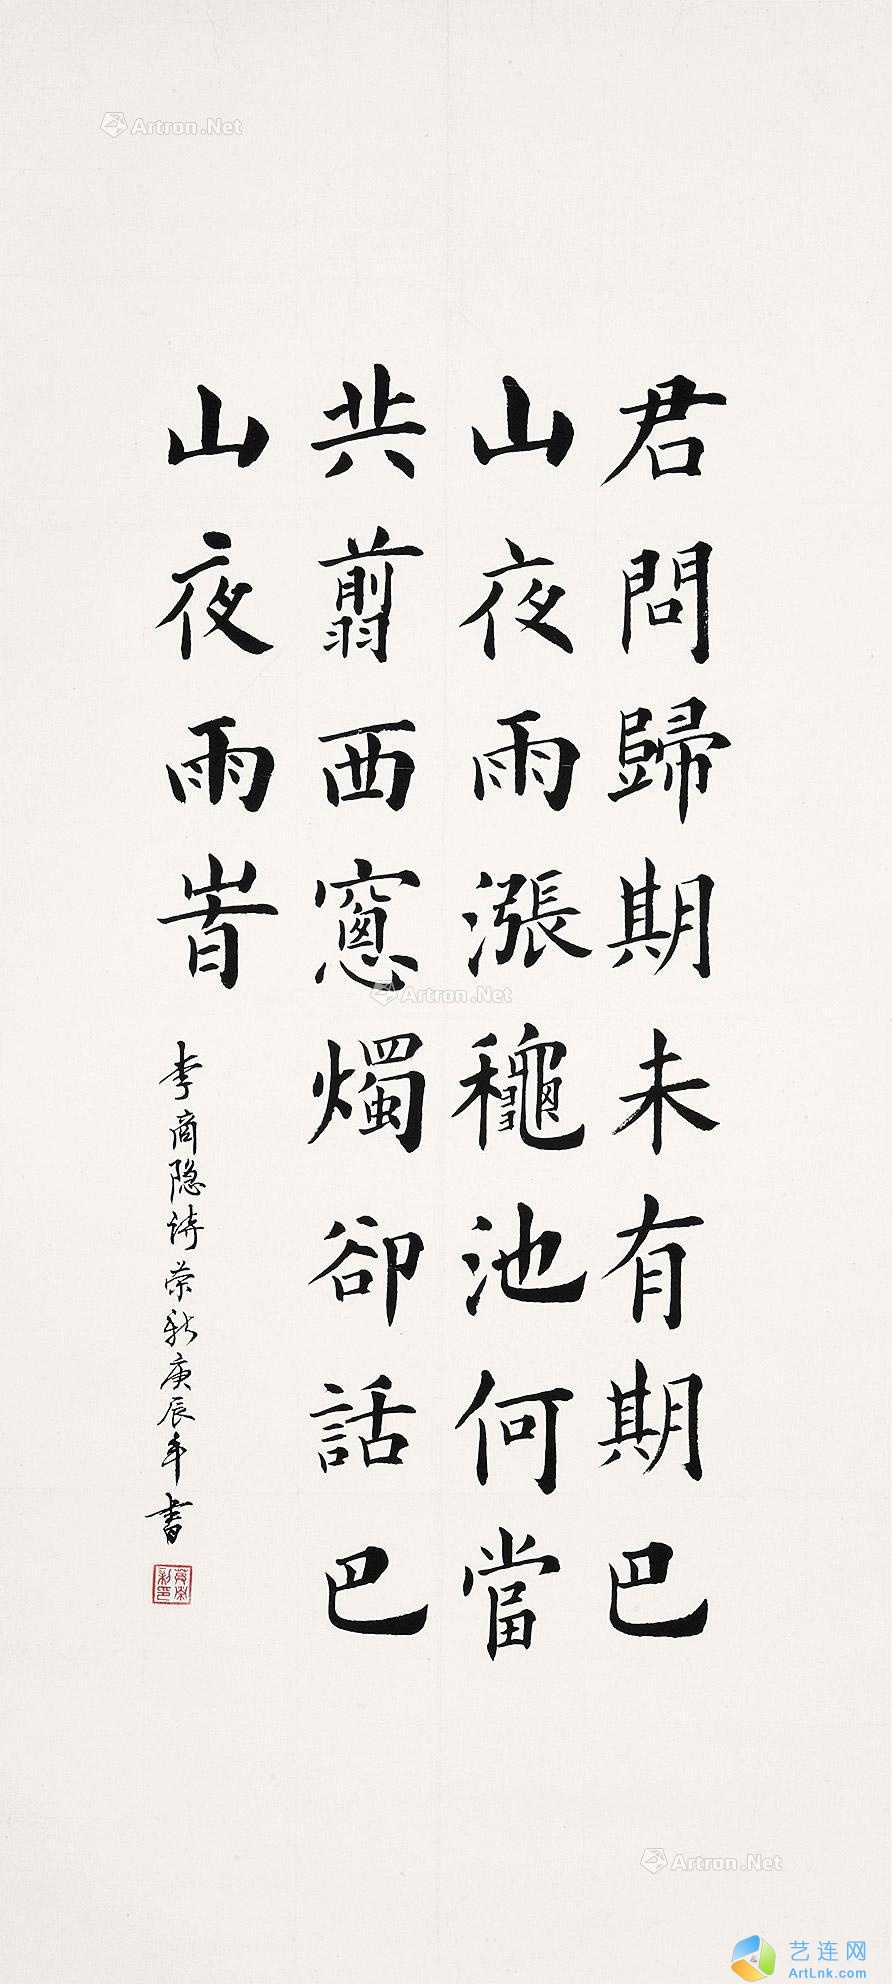 Artron.Net
君問歸期未有期巴
山夜雨漲龝池何當
共翦西窻燭卻話巴
山夜雨旹
李商隐詩荣庚辰年書
Artron.Net
Artron.Net
艺连网
ArtLnk.com